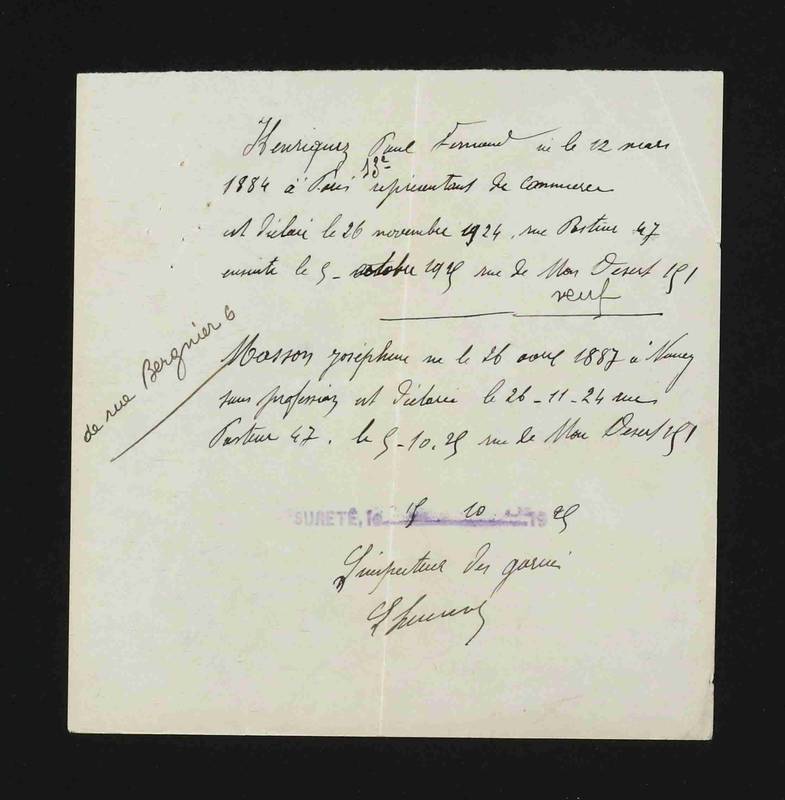 Henriquez Paul Fernand né le 12 mars
1884 à Paris 13e représentant de commerce
est déclaré le 26 novembre 1924, rue Pasteur 47
ensuite le 5 - octobre 1925 rue de Mon Desert 151
veuf
de rue Bergnier 6
Masson Joséphine né le 26 avril 1887 à Nancy
sans profession est déclarée le 26-11-24 rue
Pasteur 47. le 5-10.25 rue de Mon Desert 151
SURETÉ, le 15 10 1925
L'inspecteur des garnis